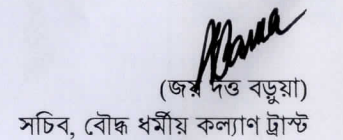 (জয় দত্ত বড়ুয়া)
সচিব, বৌদ্ধ ধর্মীয় কল্যাণ ট্রাস্ট